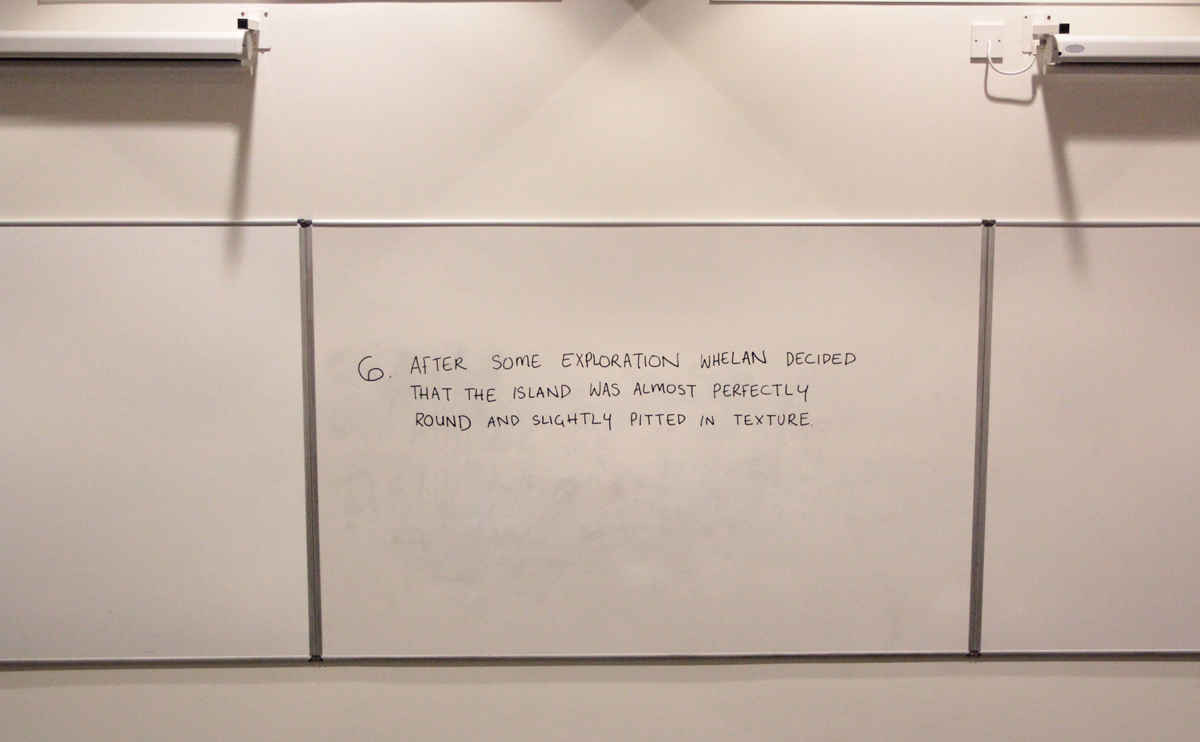 6. AFTER SOME EXPLORATION WHELAN DECIDED
THAT THE ISLAND WAS ALMOST PERFECTLY
ROUND AND SLIGHTLY PITTED IN TEXTURE.